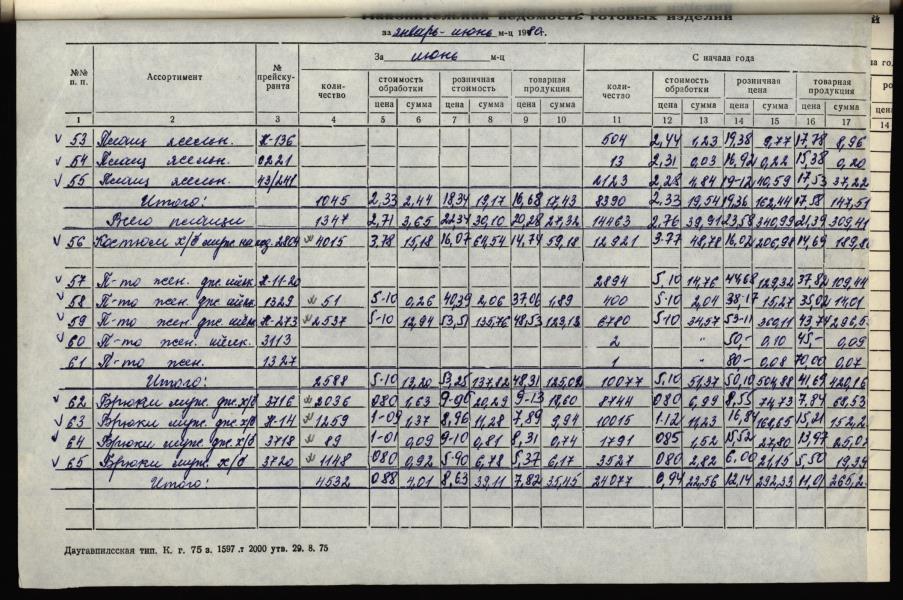 Накопительная ведомость готовых изделий
за январь-июнь м-ц 1980 г.
№№ п. п. Ассортимент № прейскуранта За июнь м-ц С начала года
количество стоимость обработки розничная стоимость товарная продукция количество стоимость обработки розничная цена товарная продукция
цена сумма цена сумма цена сумма цена сумма цена сумма цена сумма
1 2 3 4 5 6 7 8 9 10 11 12 13 14 15 16 17
53 Плащ ясельн. Н-136 504 2,44 1,23 19,38 9,77 17,78 8,96
54 Плащ ясельн. 0221 13 2,31 0,03 16,92 0,22 15,38 0,20
55 Плащ ясельн. 43/241 2123 2,28 4,84 19-12 40,59 17,53 37,22
Итого: 1045 2,33 2,44 18,34 19,17 16,68 17,43 8390 2,33 19,54 19,36 162,44 17,58 147,51
Всего плащи 1347 2,71 3,65 22,34 30,10 20,28 27,32 14463 2,76 39,91 23,58 340,99 21,39 309,41
56 Костюм х/б муж. 2804 4015 3,78 15,18 16,07 64,54 14,74 59,18 12921 3.77 48,78 16.02 206,98 14,69 189,8
57 П-то жен. дж. шёлк. Н-11-20 2894 5,10 14,76 44,68 129,32 37,82 109,44
58 П-то жен. дж. шёлк. 1329 51 5-10 0,26 40,39 2,06 37,06 1,89 400 5-10 2,04 38-17 15,27 35,02 14,01
59 П-то жен. дж. шёлк Н-273 2537 5-10 12,94 53,51 135,76 48,53 123,13 6780 5.10 34,57 53-11 360,11 43,74 296,5
60 П-то жен. шёлк. 3113 2 " 50,- 0,10 45,- 0,09
61 П-то жен. 1327 1 " 80- 0,08 70,00 0,07
Итого: 2588 5-10 13,20 53,25 137,82 48,31 125,02 10077 5.10 51,37 50,10 504,88 41,69 420,16
62 Брюки муж. дж. х/б 3716 2036 080 1,63 20,29 9-13 18,60 8744 080 6,99 8,55 74,73 7.84 68,53
63 Брюки муж. дж х/б Н-14 1259 1-09 1,37 8,96 11,28 7,89 9,94 10015 1.12 11,23 16,84 168,65 15,21 152,2
64 Брюки муж. дж х/б 3718 89 1-01 0,09 9-10 0,81 8,31 0,74 1791 085 1,52 15,52 27,80 13,97 25,0
65 Брюки муж. х/б 3720 1148 080 0,92 5-90 6,78 5,37 6,17 3527 080 2,82 6.00 21,15 5,50 19,39
Итого: 4532 0.88 4,01 8,63 39,11 7,82 35,45 24077 0,94 22,56 12,14 292,33 11,01 265,2
Даугавпилсская тип. К. г. 75 з. 1597 .т 2000 утв. 29. 8. 75